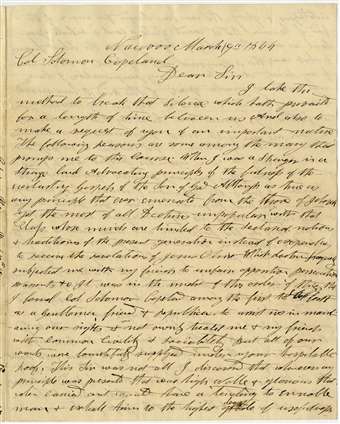 Nauvoo March 19th 1844
Col Solomon Copeland
Dear Sir
I take this
method to break that silence which hath prevaild
for a length of time between us And also to
make a request of you of an important nature
The following reasons are some among the many that
prompt me to this course When I was a stranger in a
strange land Advocating principles of the fulness of the
everlasting Gospel of the Son of God Although as pure as
any principle that ever emenated from the throne of
yet the most of all Doctrin unpopular with that
Class whose minds are limited to the Sectarian notions
& traditions of the present generation instead of expanding
to receive the revelation of Jesus Christ Which doctrin
subjected me with my friends to unfair opposition persecution
&c It was in the midst of this order of things that
I found Col Solomon Copeland among the first to
as a gentleman friend & republican to assist us in maintai
ning our rights & not ownly treated me & my friends
with common Civility & sociability But all of our
wants were bountifully supplied under your hospitable
roof. This Sir was not all I discoverd that whenever any
principle was presented that was high noble & glorious that
when carried out would have a tendency to ennoble
man & exhalt him to the highest of